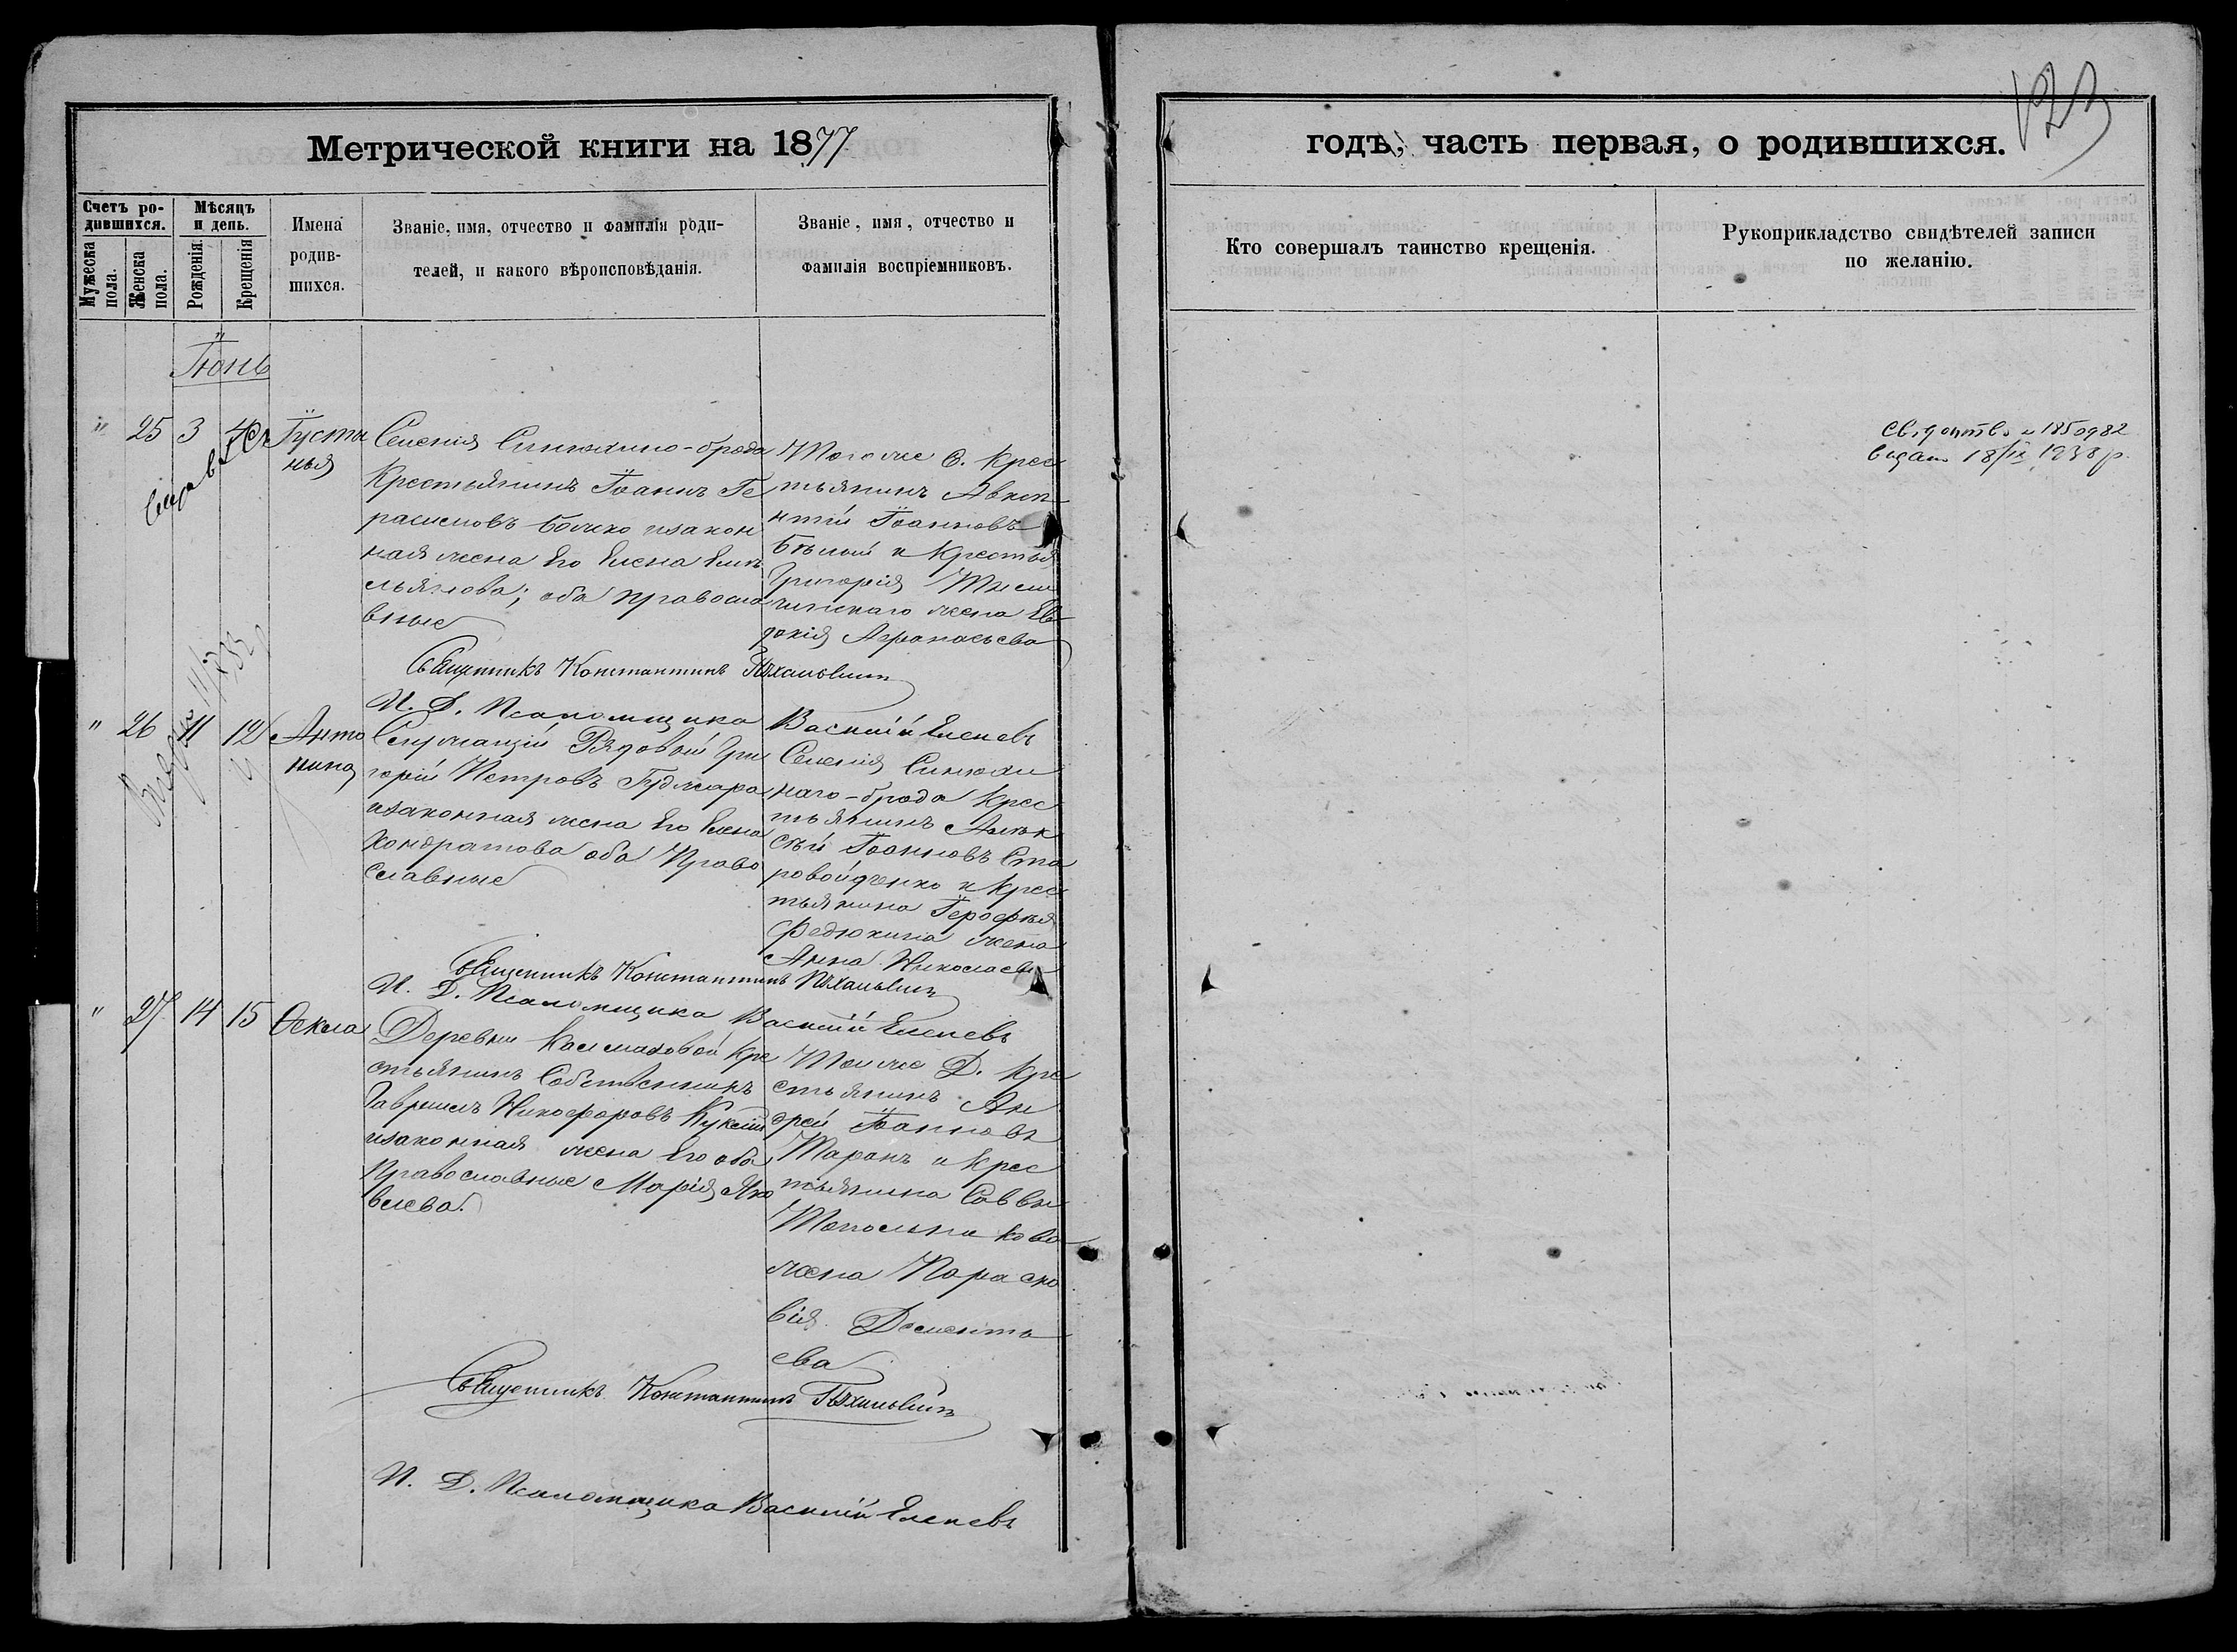 Метрической книги на 1877
годъ, часть первая, о родившихся.
Счетъ ро-
дившихся.
Мужеска
пола.
Женска
пола.
Мѣсяцъ
и день.
Рожденія.
Крещенія
Имена
родив-
шихся.
Званіе, имя, отчество и фамилія роди-
телей, и какого вѣроисповѣданія.
Званіе, имя, отчество и
фамилія воспріемниковъ.
Кто совершалъ таинство крещенія.
Рукоприкладство свидѣтелей записи
по желанію.
Іюнь
" 25 3 4
Іусти
нія
Селенія Синюхино-брода
Крестьянинъ Іоаннъ Ге
расимовъ Бочко изакон
ная жена Его Елена Еме
льянова; оба правосла
вные
Того же С. Крес
тьянинъ Авксе
нтій Іоанновъ
Бѣлый и Крестья
Григорія
жена Ев
докія Афанасьева
Священникъ Константинъ
И. Д. Псаломщика Василій Елепевъ
" 26 11 12
Анто
нина
Служащій Рядовой Гри
горій Петровъ Гуджара
изаконная жена Его Елена
Кондратова оба Право
славные
Селенія Синюхи
наго-брода Крес
тьянинъ Алек
сѣй Іоанновъ Ста
ровойденко и Крес
тьянина Іерофея
Федюкина жена
Анна Николаева
Священникъ Константинъ
И. Д. Псаломщика Василій Елепевъ
" 27 14 15 Ѳекла
Деревни Калмазовой Кре
стьянинъ Собственникъ
Гавриилъ Никифоровъ
изаконная жена Его оба
Православные Марія Яко
влева.
Той же Д. Кре
стьянинъ Ан
дрей Іоанновъ
Таранъ и Крес
тьянина Саввы
Топольникова
жена Параске
вія Дементь
ева
Священникъ Константинъ
И. Д. Псаломщика Василій Елепевъ
1850982
18/IX 1938 р.